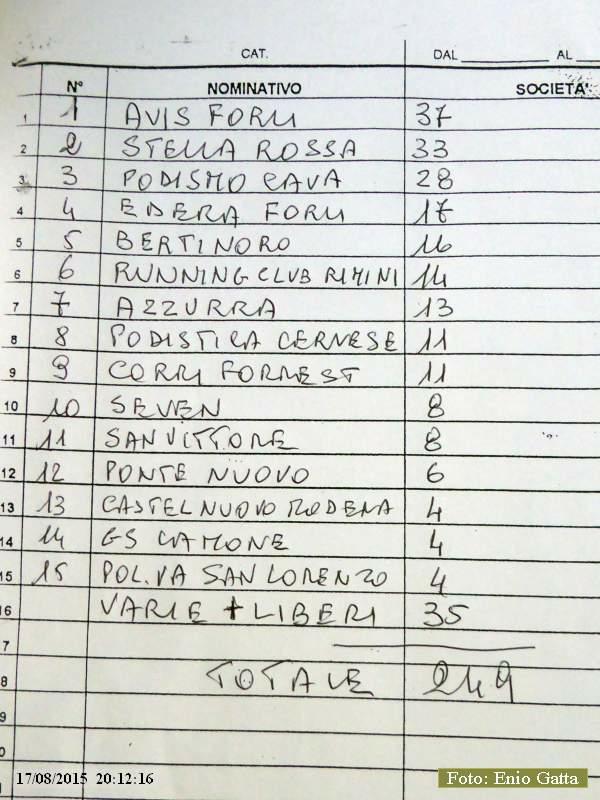 CAT. DAL AL
N° NOMINATIVO SOCIETA'
1 1 AVIS FORLI 37
2 2 STELLA ROSSA 33
3 3 PODISMO CAVA 28
4 4 EDERA FORLI 17
5 5 BERTINORO 16
6 6 RUNNING CLUB RIMINI 14
7 7 AZZURRA 13
8 8 PODISTICA CERVESE 11
9 9 CORRI FORREST 11
10 10 SEVEN 8
11 11 SAN VITTORE 8
12 12 PONTE NUOVO 6
13 13 CASTELNUOVO MODENA 4
14 14 GS CAMONE 4
15 15 POL.VA SAN LORENZO 4
16 VARIE + LIBERI 35
7
8 TOTALE 249
9
0
17/08/2015 20:12:16 Foto: Enio Gatta